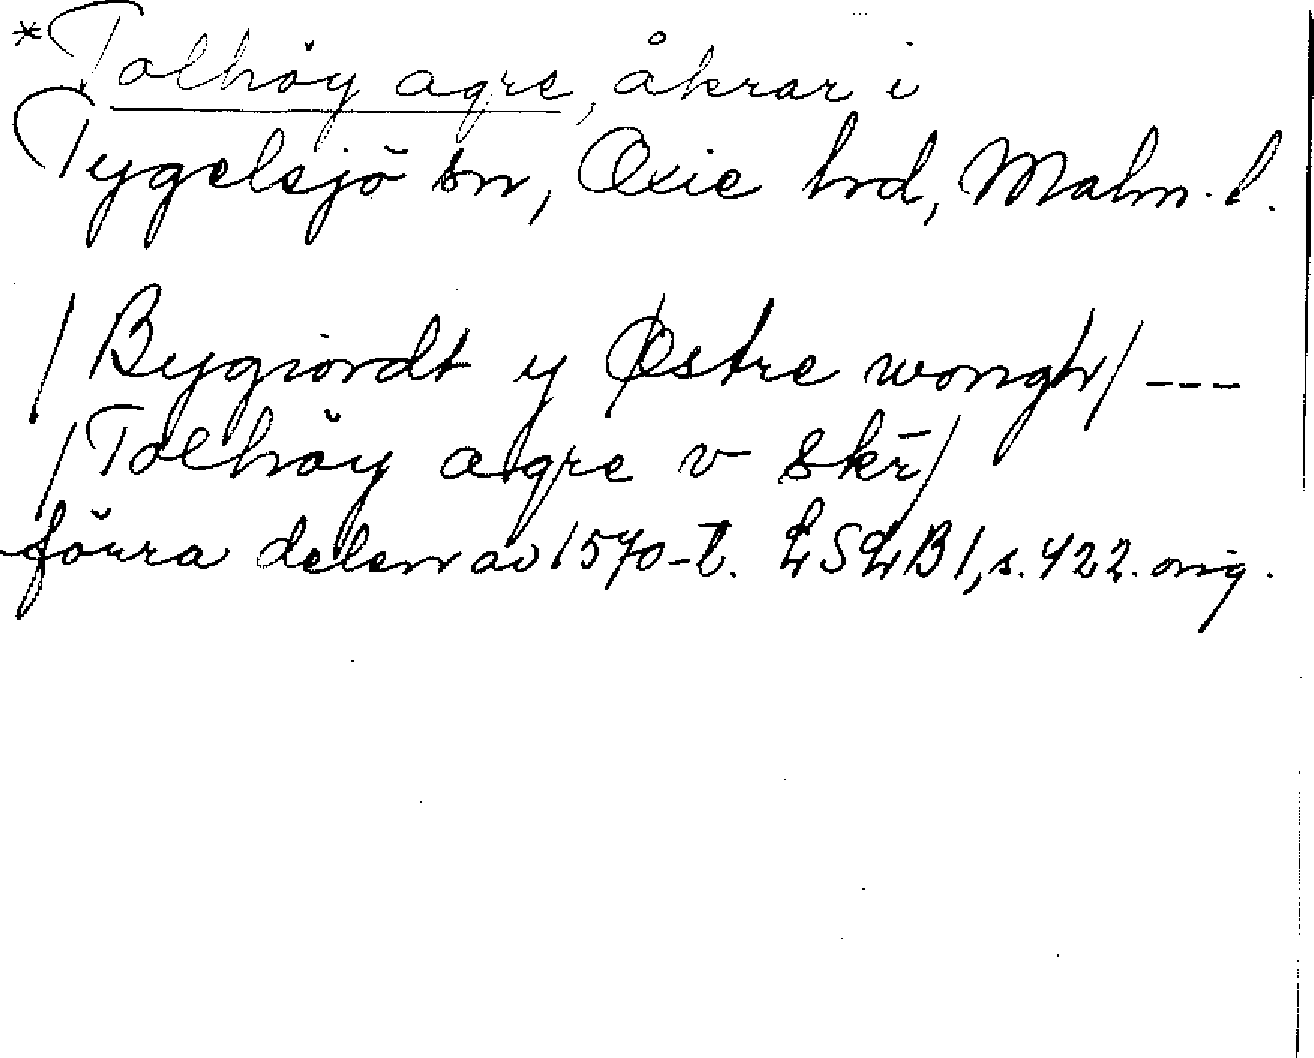 *Tolhöy agre, åkrar i
Tygelsjö sn, Oxie hrd, Malm. l.
/Bygiordt y Østre wongh/ ---
/Tolhöy agre v skr̄/
förra delen av 1570-t. LSLB1, s. 422. orig.